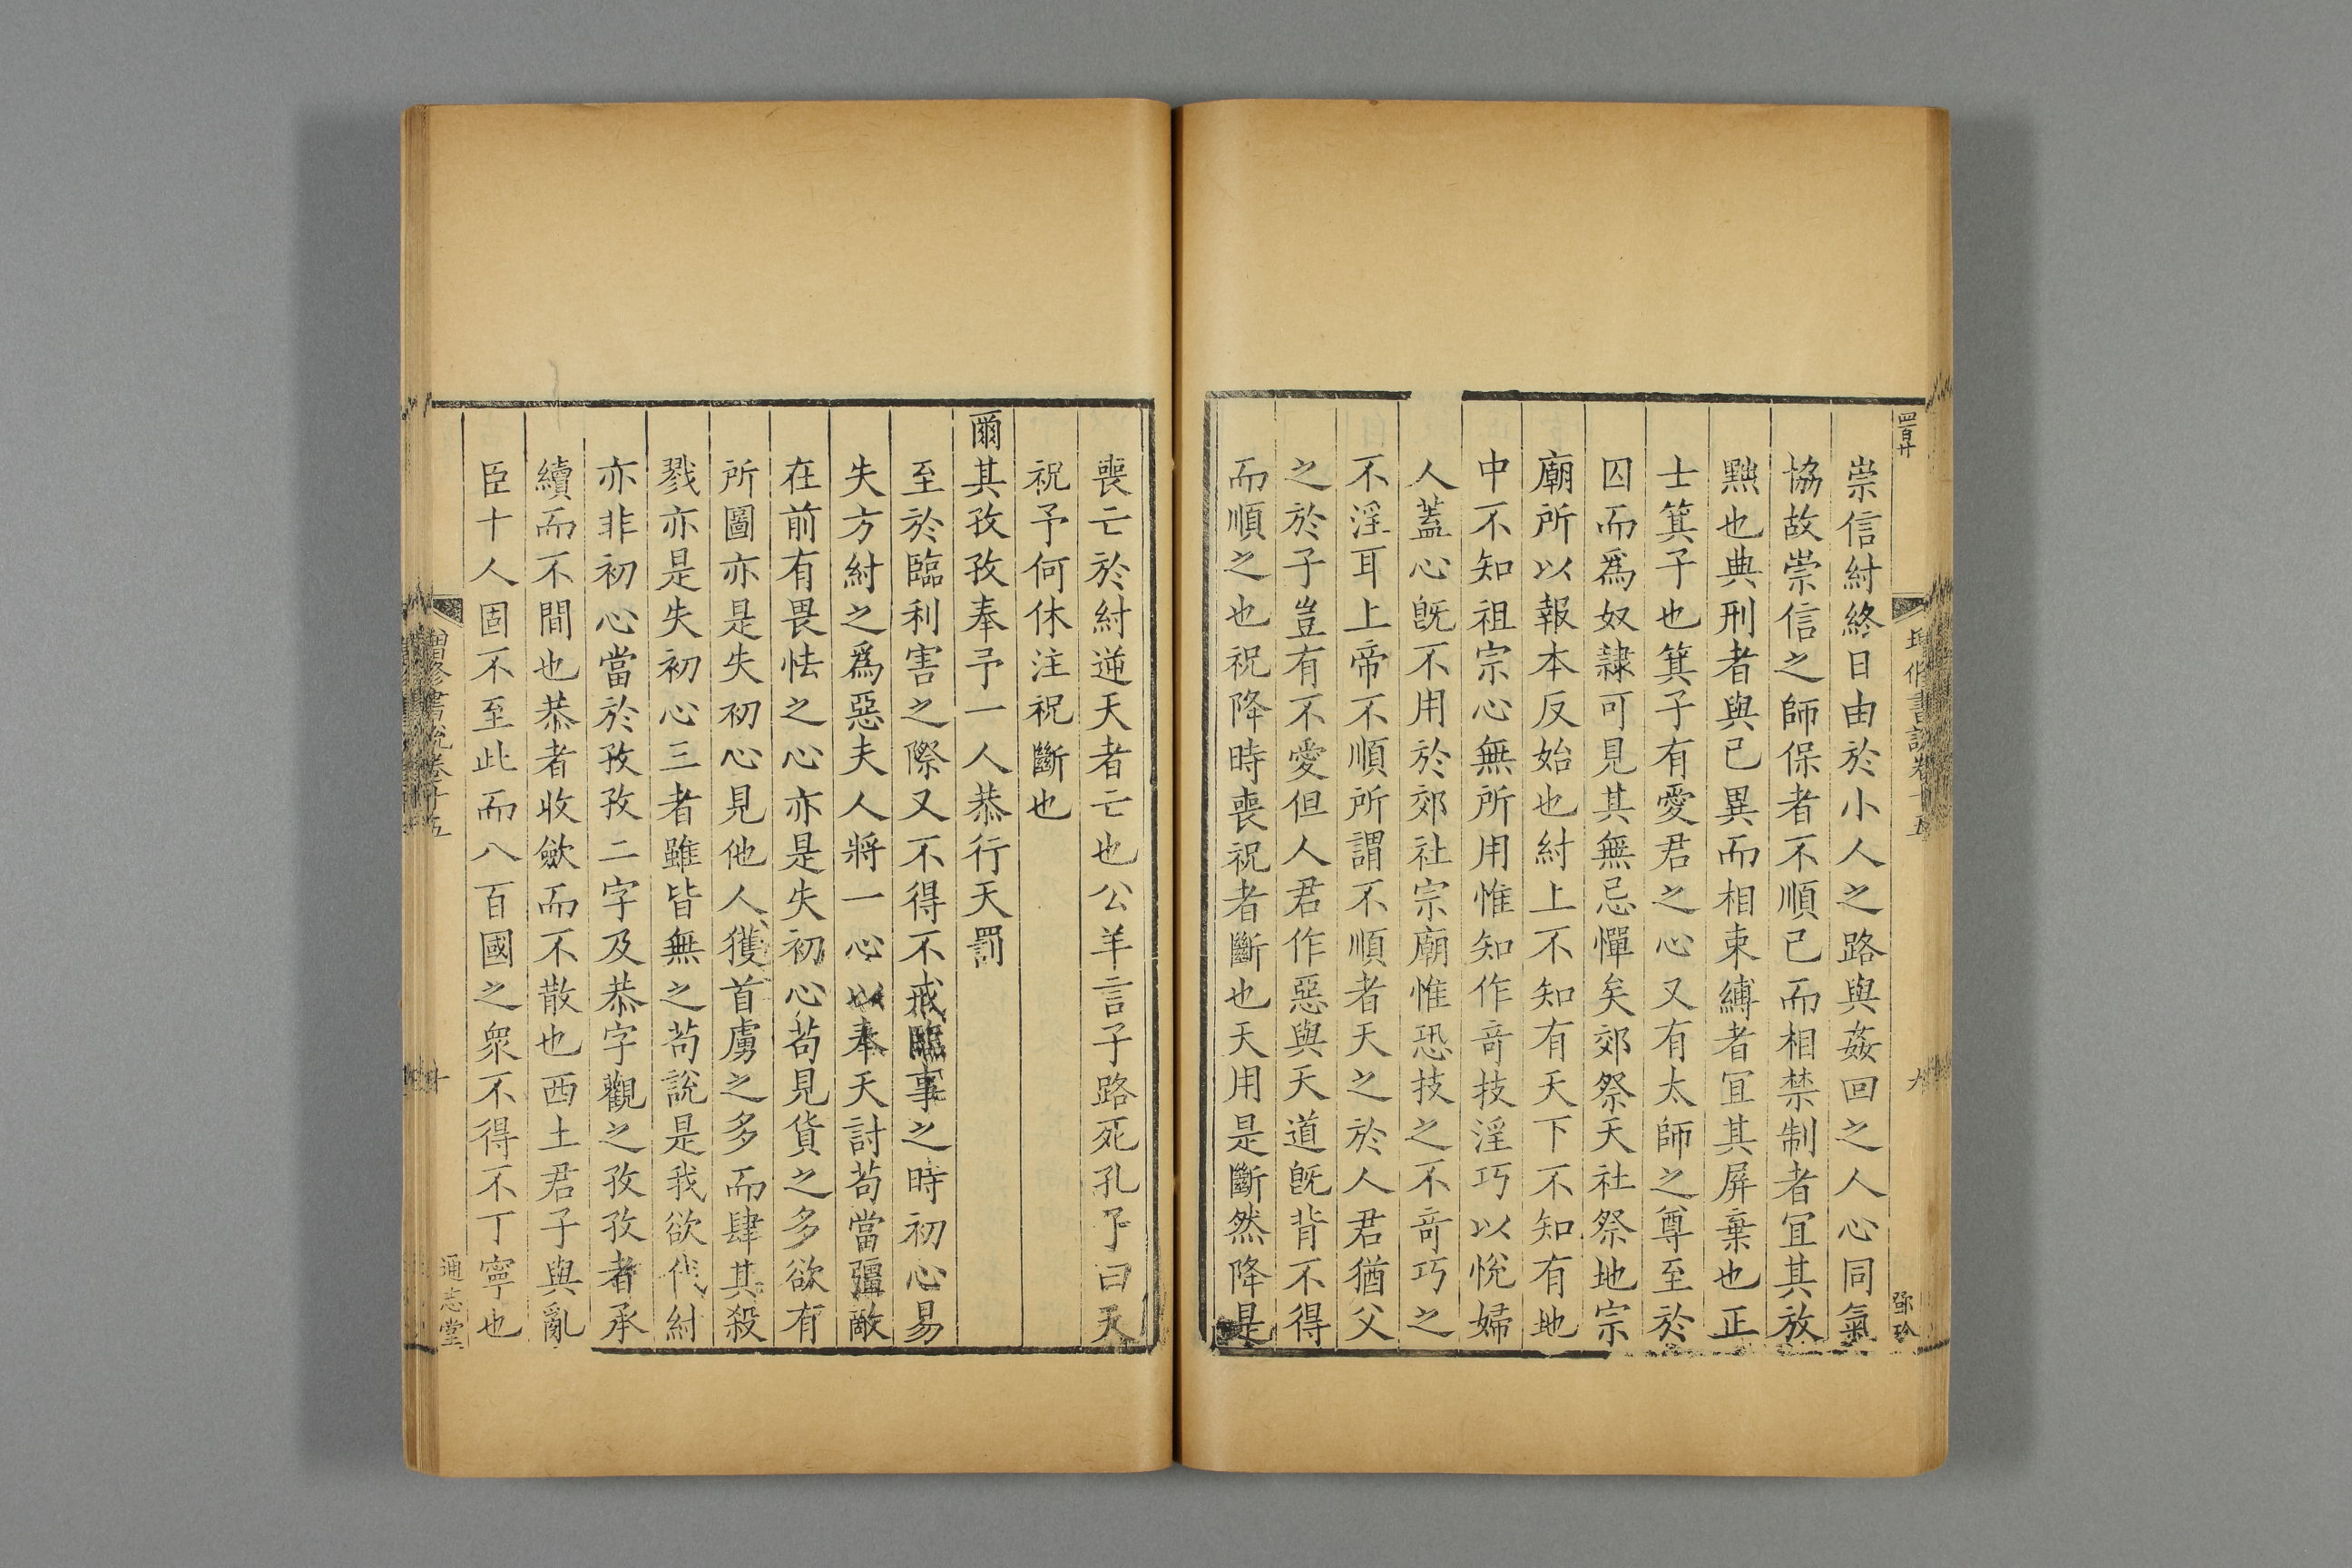 四百廿
崇信紂終日由於小人之路與姦回之人心同氣
協故崇信之師保者不順己而相禁制者宜其放
黜也典刑者與已異而相束縛者宜其屏棄也正
士箕子也箕子有愛君之心又有太師之尊至於
囚而爲奴隷可見其無忌憚矣郊祭天社祭地宗
廟所以報本反始也紂上不知有天下不知有地
中不知祖宗心無所用惟知作竒技淫巧以悅婦
人蓋心旣不用於郊社宗廟惟恐技之不竒巧之
不淫耳上帝不順所謂不順者天之於人君猶父
之於子豈有不愛但人君作惡與天道旣背不得
而順之也祝降時喪祝者斷也天用是斷然降是
喪亡於紂逆天者亡也公羊言子路死孔子曰天
祝予何休注祝斷也
爾其孜孜奉予一人恭行天罰
至於臨利害之際又不得不戒臨事之時初心易
失方紂之爲惡夫人將一心以奉天討苟當彊敵
在前有畏怯之心亦是失初心苟見貨之多欲有
所圖亦是失初心見他人獲首虜之多而肆其殺
戮亦是失初心三者雖皆無之苟說是我欲伐紂
亦非初心當於孜孜二字及恭字觀之孜孜者承
續而不間也恭者收斂而不散也西土君子與亂
臣十人固不至此而八百國之衆不得不丁寧也
增修書說卷十五
十
通志堂